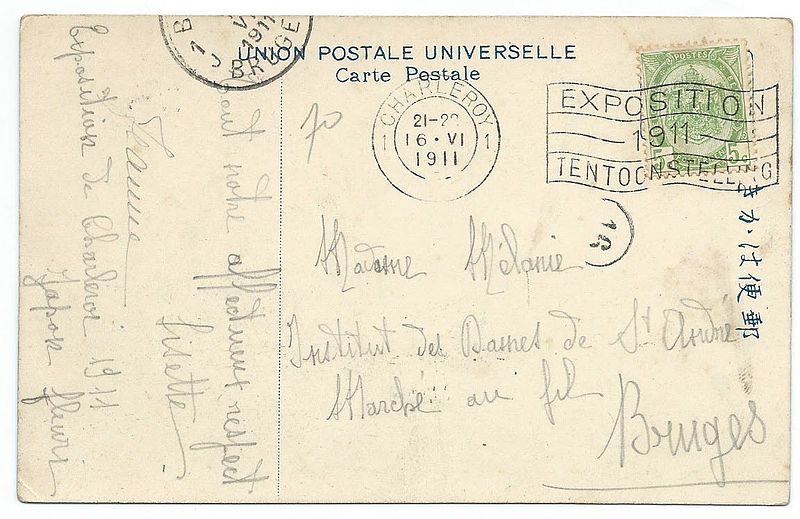 UNION POSTALE UNIVERSELLE
Carte Postale
1911
BRUGGE
CHARLEROY
1 1
21-22
16 · VI
1911
EXPOSITION
1911
TENTOONSTELLING
POSTES
5c 5c
郵便はかき
Madame Mélanie
Institut des Dames de St André
Marché au fil
Bruges
notre affectueux respect
Lisette
Jeanne
Exposition de Charleroi 1911
Japon fleuri